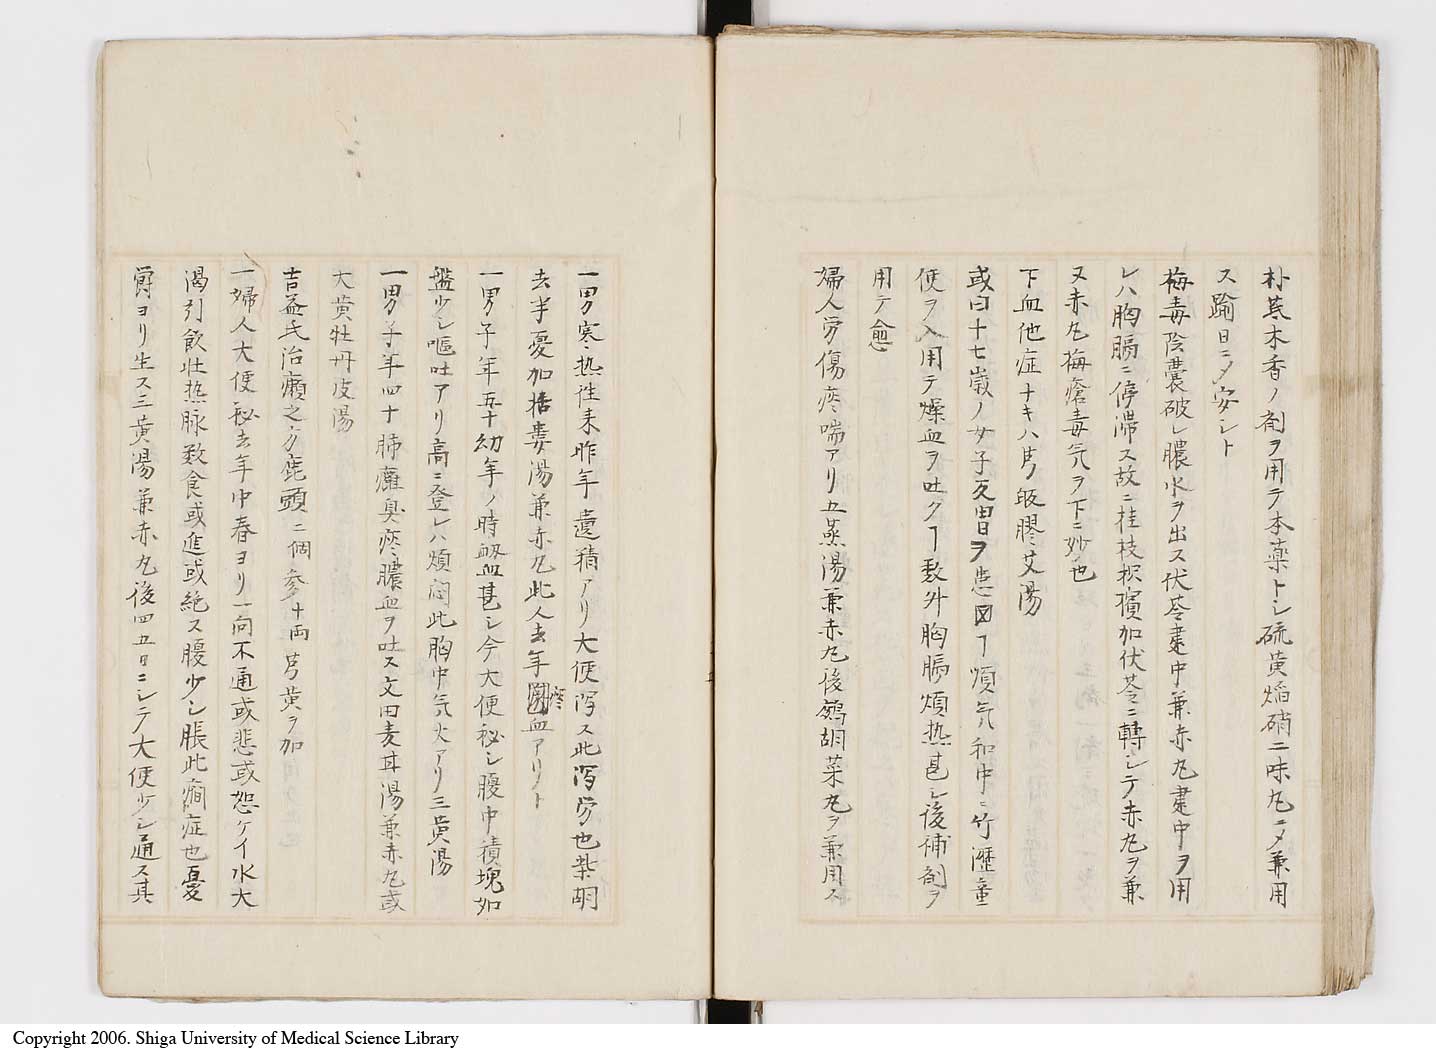 朴茋木香ノ剤ヲ用テ本薬トシ硫黄焰硝二味丸ニメ兼用
ス踰日ニメ安シト
梅毒陰囊破レ膿水ヲ出ス伏苓建中兼赤丸建中ヲ用
レハ胸膈ニ停滞ス故ニ桂枝枳 加伏苓ニ轉シテ赤丸ヲ兼
又赤丸梅瘡毒気ヲ下ニ妙也
下血他症ナキハ芎皈膠艾湯
或曰十七歳ノ女子反胃ヲ患 ヿ煩気和中ニ竹瀝童
便ヲ入用テ燥血ヲ吐クヿ数升胸膈煩热甚シ後補剤ヲ
用テ愈
婦人労傷痰喘アリ五蒸湯兼赤丸後鷓胡菜丸ヲ兼用ス
一男寒热往来昨年遺積アリ大便瀉ス此瀉労也柴胡
去半憂加栝蔞湯兼赤丸此人去年痰血アリト
一男子年五十幼年ノ時衂血甚シ今大便秘シ腹中積塊如
盤少シ嘔吐アリ高ニ登レハ煩悶此胸中気火アリ三黄湯
一男子年四十肺癰臭痰膿血ヲ吐ス文田麦耳湯兼赤丸或
大黄牡丹皮湯
吉益氏治癩之方鹿頭二個参十両芎黄ヲ加
一婦人大便秘去年中春ヨリ一向不通或悲或怨ケイ水大
渇引飲壮热脉数食或進或絶ス腹少シ脹此癇症也憂
欝ヨリ生ス三黄湯兼赤丸後四五日ニシテ大便少シ通ス其
Copyright 2006. Shiga University of Medical Science Library